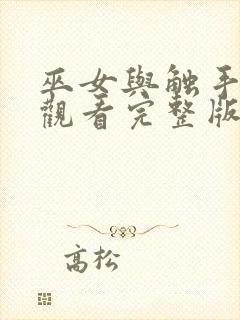 巫女與触手
觀看完整版
高松